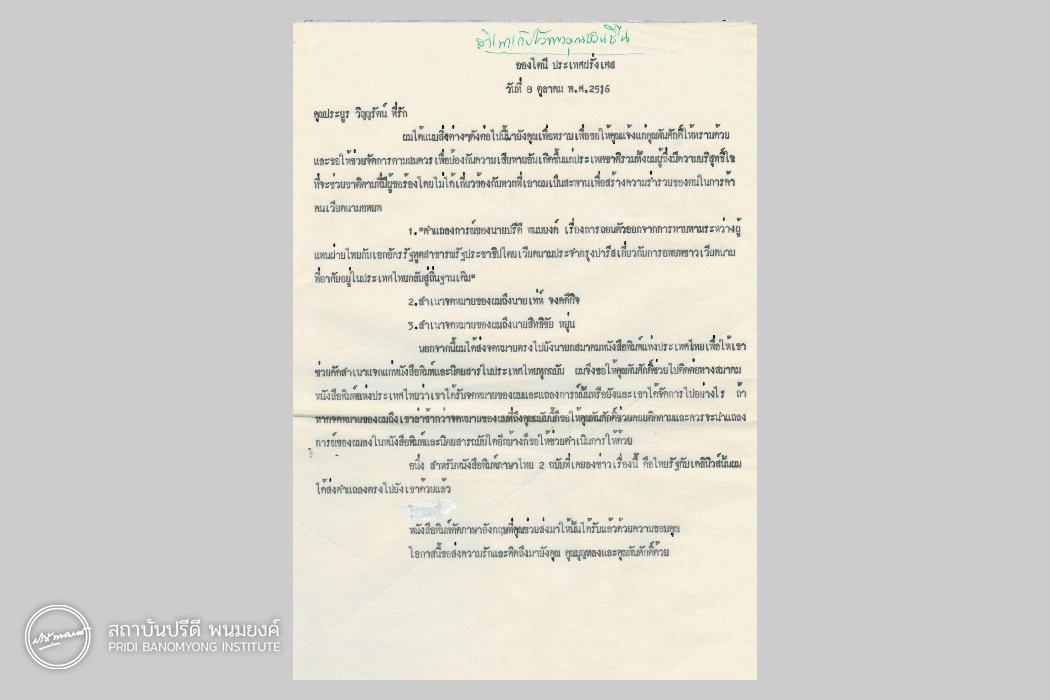 สำเนาเก็บไว้ทาง
อองโตนี ประเทศฝรั่งเศส
วันที่ 8 ตุลาคม พ.ศ.2516
คุณประยูร วิญญรัตน์ ที่รัก
ผมได้แนบสิ่งต่างๆดังต่อไปนี้มายังคุณเพื่อทราบ เพื่อขอให้คุณแจ้งแก่คุณพันศักดิ์ให้ทราบด้วย
และขอให้ช่วยจัดการตามสมควร เพื่อป้องกันความเสียหายอันเกิดขึ้นแก่ประเทศชาติรวมทั้งผมผู้ซึ่งมีความบริสุทธิ์ใจ
ที่จะช่วยชาติตามที่มีผู้ขอร้องโดยไม่ได้เกี่ยวข้องกับพวกที่เอาผมเป็นสะพานเพื่อสร้างความร่ำรวยของตนในการค้า
คนเวียดนามอพยพ
1."คำแถลงการณ์ของนายปรีดี พนมยงค์ เรื่องการถอนตัวออกจากการทาบทามระหว่างผู้
แทนฝ่ายไทยกับเอกอัครรัฐทูตสาธารณรัฐประชาธิปไตยเวียดนามประจำกรุงปารีสเกี่ยวกับการอพยพชาวเวียดนาม
ที่อาศัยอยู่ในประเทศไทยกลับสู่ถิ่นฐานเดิม"
2.สำเนาจดหมายของผมถึงนายเท่ห์ จงคดีกิจ
3.สำเนาจดหมายของผมถึงนายสิทธิชัย หยุ่น
นอกจากนี้ผมได้ส่งจดหมายตรงไปยังนายกสมาคมหนังสือพิมพ์แห่งประเทศไทยเพื่อให้เขา
ช่วยคัดสำเนาแจกแก่หนังสือพิมพ์และนิตยสารในประเทศไทยทุกฉบับ ผมจึงขอให้คุณพันศักดิ์ช่วยไปติดต่อทางสมาคม
หนังสือพิมพ์แห่งประเทศไทยว่าเขาได้รับจดหมายของผมและแถลงการณ์นั้นหรือยังและเขาได้จัดการไปอย่างไร ถ้า
หากจดหมายของผมถึงเขาล่าช้ากว่าจดหมายของผมที่ถึงคุณฉบับนี้ก็ขอให้คุณพันศักดิ์ช่วยคอยติดตามและควรจะนำแถลง
การณ์ของผมลงในหนังสือพิมพ์และนิตยสารฉบับใดอีกบ้างก็ขอให้ช่วยดำเนินการให้ด้วย
อนึ่ง สำหรับหนังสือพิมพ์ภาษาไทย 2 ฉบับที่เคยลงข่าวเรื่องนี้ คือไทยรัฐกับเดลินิวส์นั้นผม
ได้ส่งคำแถลงตรงไปยังเขาด้วยแล้ว
หนังสือพิมพ์ตัดภาษาอังกฤษที่คุณช่วยส่งมาให้นั้นได้รับแล้วด้วยความขอบคุณ
โอกาสนี้ขอส่งความรักและคิดถึงมายังคุณ คุณบุญหลงและคุณพันศักดิ์ด้วย
สถาบันปรีดี พนมยงค์
PRIDI BANOMYONG INSTITUTE